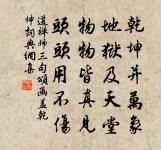 乾坤并萬象
地獄及天堂
物物皆真見
頭頭用不傷
道禪師三句頌函蓋乾
坤詞典網集